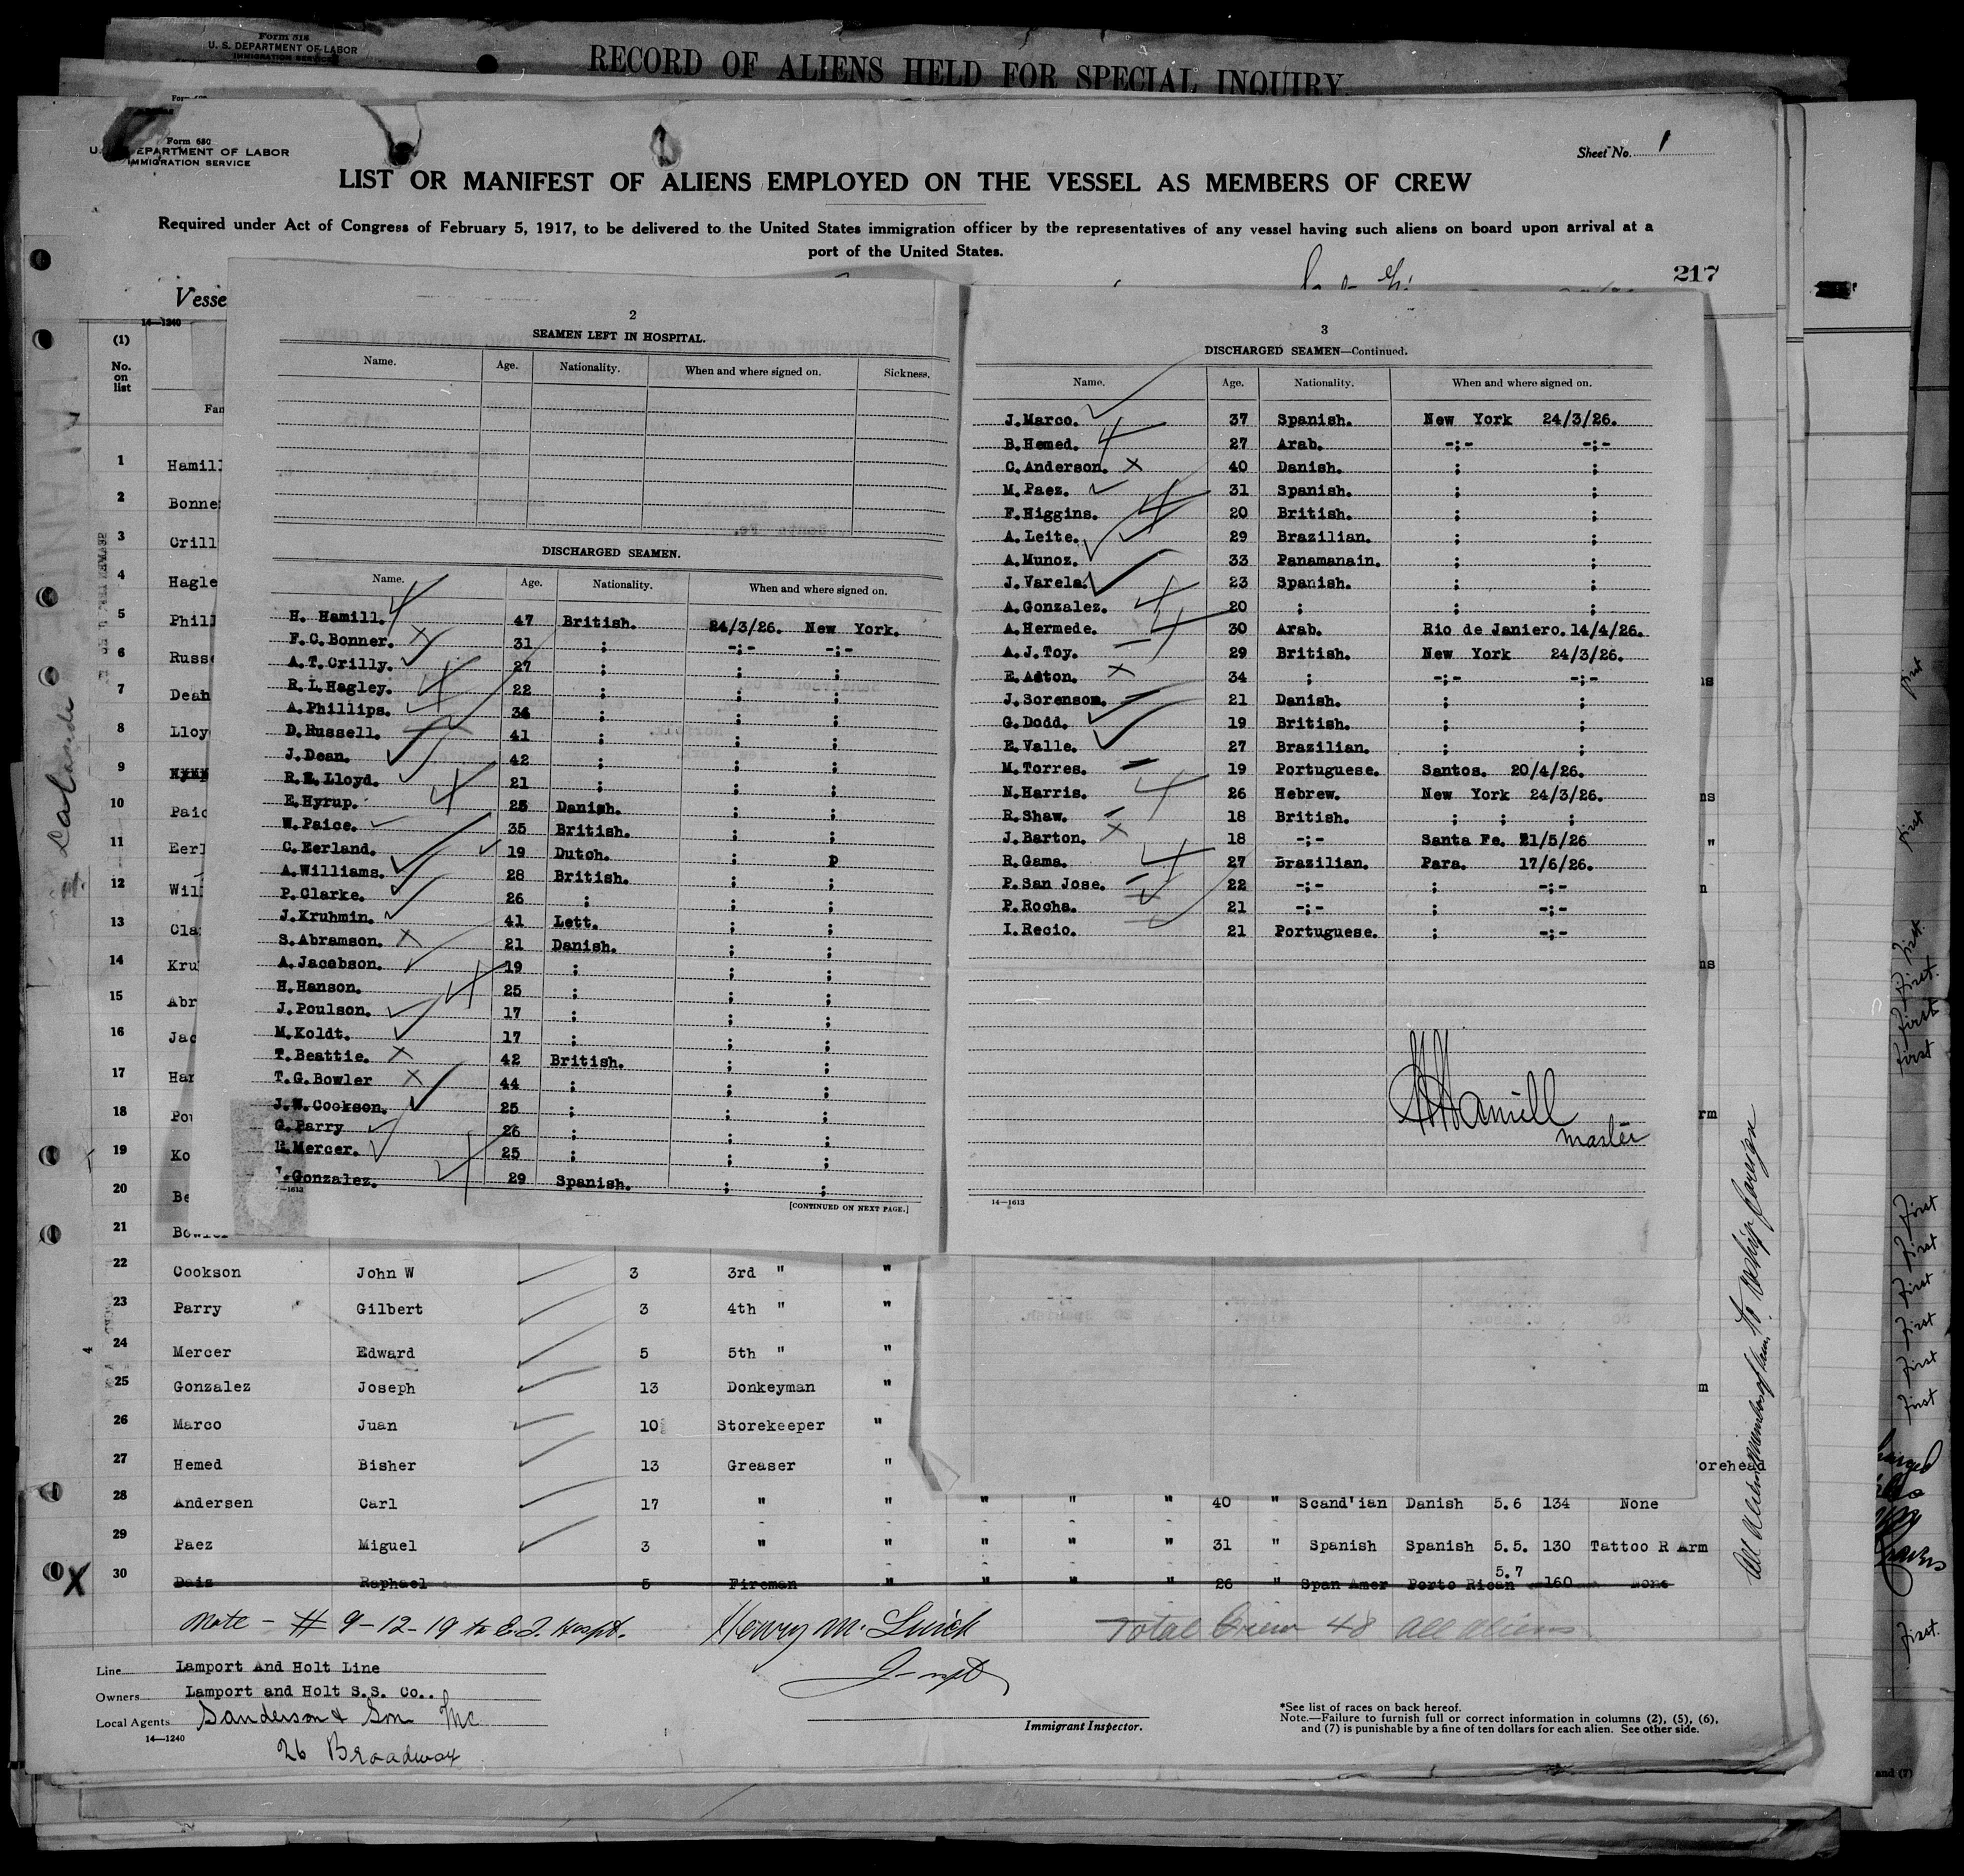 Form 518
U. S. DEPARTMENT OF LABOR
IMMIGRATION SERVICE
RECORD OF ALIENS HELD FOR SPECIAL INQUIRY
Form 680
U. S. DEPARTMENT OF LABOR
IMMIGRATION SERVICE
Sheet No. 1
LIST OR MANIFEST OF ALIENS EMPLOYED ON THE VESSEL AS MEMBERS OF CREW
Required under Act of Congress of February 5, 1917, to be delivered to the United States immigration officer by the representatives of any vessel having such aliens on board upon arrival at a
port of the United States.
217
Vesse
14—1240
(1)
No. on list
Fam
1 Hamill
2 Bonne
3 Crill
4 Hagle
5 Phill
6 Russe
7 Dean
8 Lloy
9
10 Paic
11 Eerl
12 Wil
13 Cla
14 Kru
15 Abr
16 Jac
17 Han
18 Pou
19 Ko
20 Be
21 Bowler
2
SEAMEN LEFT IN HOSPITAL.
Name. Age. Nationality. When and where signed on. Sickness.
DISCHARGED SEAMEN.
Name. Age. Nationality. When and where signed on.
H. Hamill. 47 British. 24/3/26. New York.
F.C.Bonner. 31 ; -;- -;-
A.T.Crilly. 27 ; ; ;
R.L.Hagley. 22 ; ; ;
A.Phillips. 34 ; ; ;
D.Russell. 41 ; ; ;
J.Dean. 42 ; ; ;
R.E.Lloyd. 21 ; ; ;
E.Hyrup. 25 Danish. ; ;
W.Paice. 35 British. ; ;
C.Eerland. 19 Dutch. ; p
A.Williams. 28 British. ; ;
P.Clarke. 26 ; ; ;
J.Kruhmin. 41 Lett. ; ;
S.Abramson. 21 Danish. ; ;
A.Jacobson. 19 ; ; ;
H.Hanson. 25 ; ; ;
J.Poulson. 17 ; ; ;
M.Koldt. 17 ; ; ;
T.Beattie. 42 British. ; ;
T.G.Bowler 44 ; ; ;
J.W.Cookson. 25 ; ; ;
G.Parry 26 ; ; ;
E.Mercer. 25 ; ; ;
.Gonzalez. 29 Spanish. ; ;
—1613
[CONTINUED ON NEXT PAGE.]
3
DISCHARGED SEAMEN—Continued.
Name. Age. Nationality. When and where signed on.
J.Marco. 37 Spanish. New York 24/3/26.
B.Hemed. 27 Arab. -;- -;-
C.Anderson. 40 Danish. ; ;
M.Paez. 31 Spanish. ; ;
F.Higgins. 20 British. ; ;
A.Leite. 29 Brazilian. ; ;
A.Munoz. 33 Panamanain. ; ;
J.Varela. 23 Spanish. ; ;
A.Gonzalez. 20 ; ; ;
A.Hermede. 30 Arab. Rio de Janiero. 14/4/26.
A.J.Toy. 29 British. New York 24/3/26.
E.Aston. 34 ; -;- -;-
J.Sorensom. 21 Danish. ; ;
G.Dodd. 19 British. ; ;
E.Valle. 27 Brazilian. ; ;
M.Torres. 19 Portuguese. Santos. 20/4/26.
N.Harris. 26 Hebrew. New York 24/3/26.
R.Shaw. 18 British. ; ; ;
J.Barton. 18 -;- Santa Fe. 21/5/26
R.Gama. 27 Brazilian. Para. 17/6/26.
P.San Jose. 22 -;- ; -;-
P.Rocha. 21 -;- ; -;-
I.Recio. 21 Portuguese. ; -;-
HHamill
master
14—1613
22 Cookson John W 3 3rd " "
23 Parry Gilbert 3 4th " "
24 Mercer Edward 5 5th " "
25 Gonzalez Joseph 13 Donkeyman "
26 Marco Juan 10 Storekeeper "
27 Hemed Bisher 13 Greaser " orehead
28 Andersen Carl 17 " " " " " 40 " Scand'ian Danish 5.6 134 None
29 Paez Miguel 3 " " " " " 31 " Spanish Spanish 5.5. 130 Tattoo R Arm
30 Daiz Raphael 5 Fireman " " " " 26 " Span Amer Porto Rican 5.7 160 None
Note - # 9-12-19 to E.I. Hospt.
Total Crew 48 all aliens
Line Lamport And Holt Line
Owners Lamport and Holt S.S. Co..
Local Agents Sanderson & Son Inc
14—1240
26 Broadway
Immigrant Inspector.
*See list of races on back hereof.
Note.—Failure to furnish full or correct information in columns (2), (5), (6),
and (7) is punishable by a fine of ten dollars for each alien. See other side.
first
first
first
first
first
first
first
first
first
first
first
first
first
and (7)